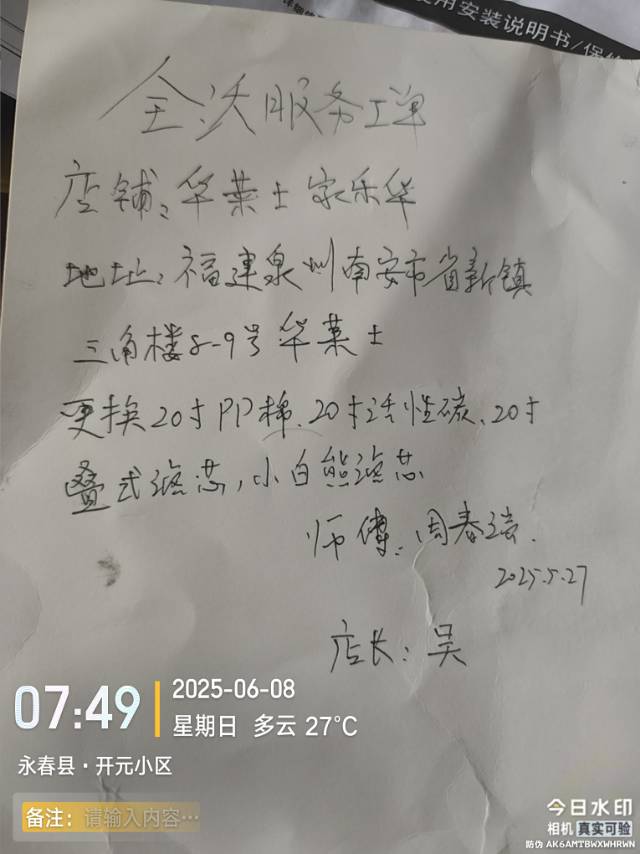 用安装说明书/保修
全沃服务工单
店铺：华莱士家乐华
地址：福建泉州南安市省新镇
三角楼8-9号华莱士
更换20寸PP棉、20寸活性碳、20寸
叠式滤芯，小白熊滤芯
师傅：周春
2025.5.27
店长：吴
07:49
2025-06-08
星期日 多云 27°C
永春县·开元小区
备注： 请输入内容…
今日水印
相机 真实可验
防伪 AK6AMTBWXWHRWN